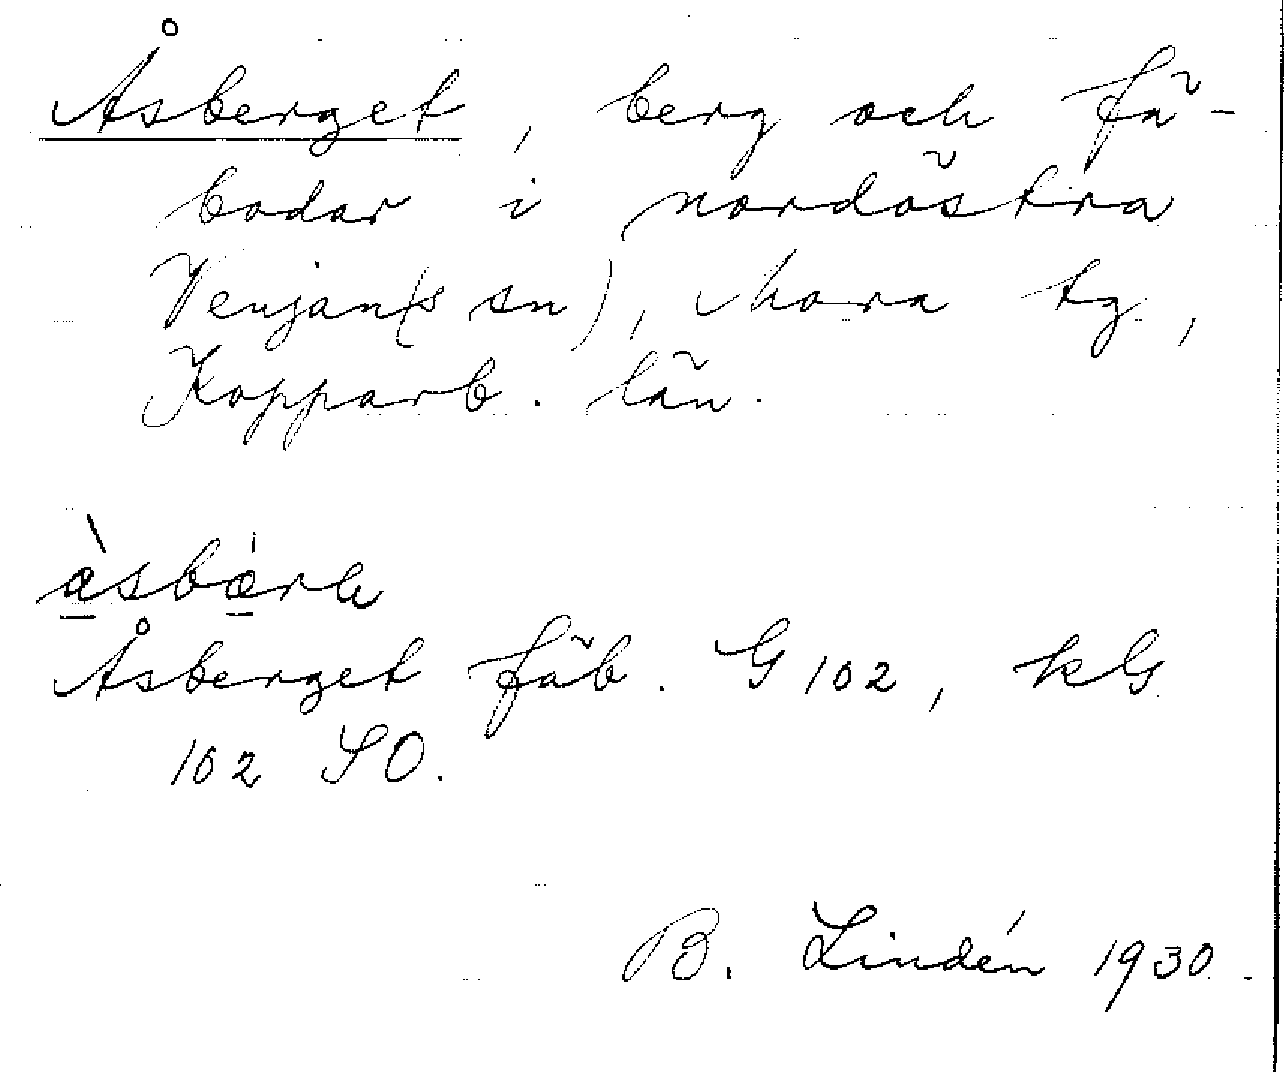 Åsberget, berg och fä-
bodar i nordöstra
Venjan(s sn), Mora tg,
Kopparb. län.
àsbärk
Åsberget fäb. G 102, kG
102 SO.
B. Lindén 1930.